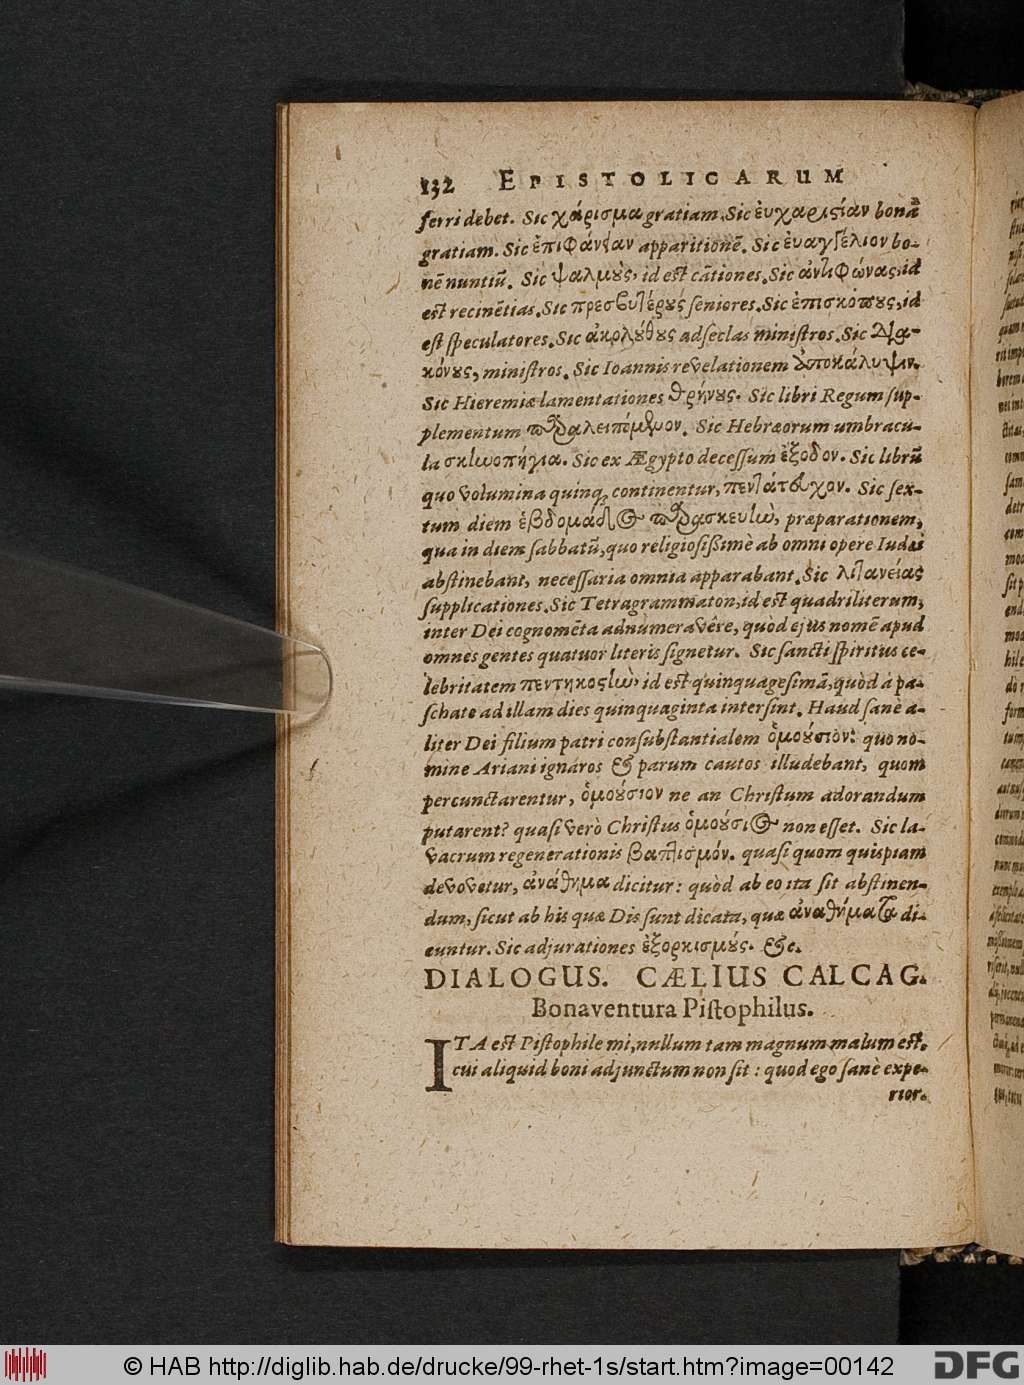 132 EPISTOLICARUM
ferri debet. Sic χάρισμα gratiam. Sic ἐυχαριςίαν bonā
gratiam. Sic ἐπιφάνειαν apparitionē. Sic ἐυαγγέλιον bo-
nē nuntiū. Sic ψαλμοὺς, id est cātiones. Sic ἀντιφώνας, id
est recinētias. Sic πρεσβυτέρους seniores. Sic ἐπισκόπους, id
est speculatores. Sic ἀκολούθους adseclas ministros. Sic Δια-
κόνους, ministros. Sic Ioannis revelationem ἀποκάλυψιν.
Sic Hieremiæ lamentationes θρήνους. Sic libri Regum sup-
plementum παραλειπόμενον. Sic Hebræorum umbracu-
la σκηνοπήγια. Sic ex Ægypto decessum ἐξοδον. Sic librū
quo volumina quinq; continentur, πεντάτευχον. Sic sex-
tum diem ἑβδομάδος παρασκευὴν, præparationem,
qua in diem sabbatū, quo religiosißimè ab omni opere Iudæi
abstinebant, necessaria omnia apparabant. Sic λιτανείας
supplicationes. Sic Tetragrammaton, id est quadriliterum,
inter Dei cognomēta adnumeravêre, quòd ejus nomē apud
omnes gentes quatuor literis signetur. Sic sancti spiritus ce-
lebritatem πεντηκοςὴν, id est quinquagesimā, quòd à pa-
schate ad illam dies quinquaginta intersint. Haud sanè a-
liter Dei filium patri consubstantialem ὁμούσιον: quo no-
mine Ariani ignaros & parum cautos illudebant, quom
percunctarentur, ὁμούσιον ne an Christum adorandum
putarent? quasi verò Christus ὁμούσιος non esset. Sic la-
vacrum regenerationis βαπτισμόν. quasi quom quispiam
devovetur, ἀνάθημα dicitur: quòd ab eo ita sit abstinen-
dum, sicut ab his quæ Dis sunt dicata, quæ ἀναθήματα di-
cuntur. Sic adjurationes ἐξορκισμούς. &c.
DIALOGUS. CÆLIUS CALCAG.
Bonaventura Pistophilus.
ITA est Pistophile mi, nullum tam magnum malum est,
cui aliquid boni adjunctum non sit: quod ego sanè expe-
rior.
© HAB http://diglib.hab.de/drucke/99-rhet-1s/start.htm?image=00142 DFG